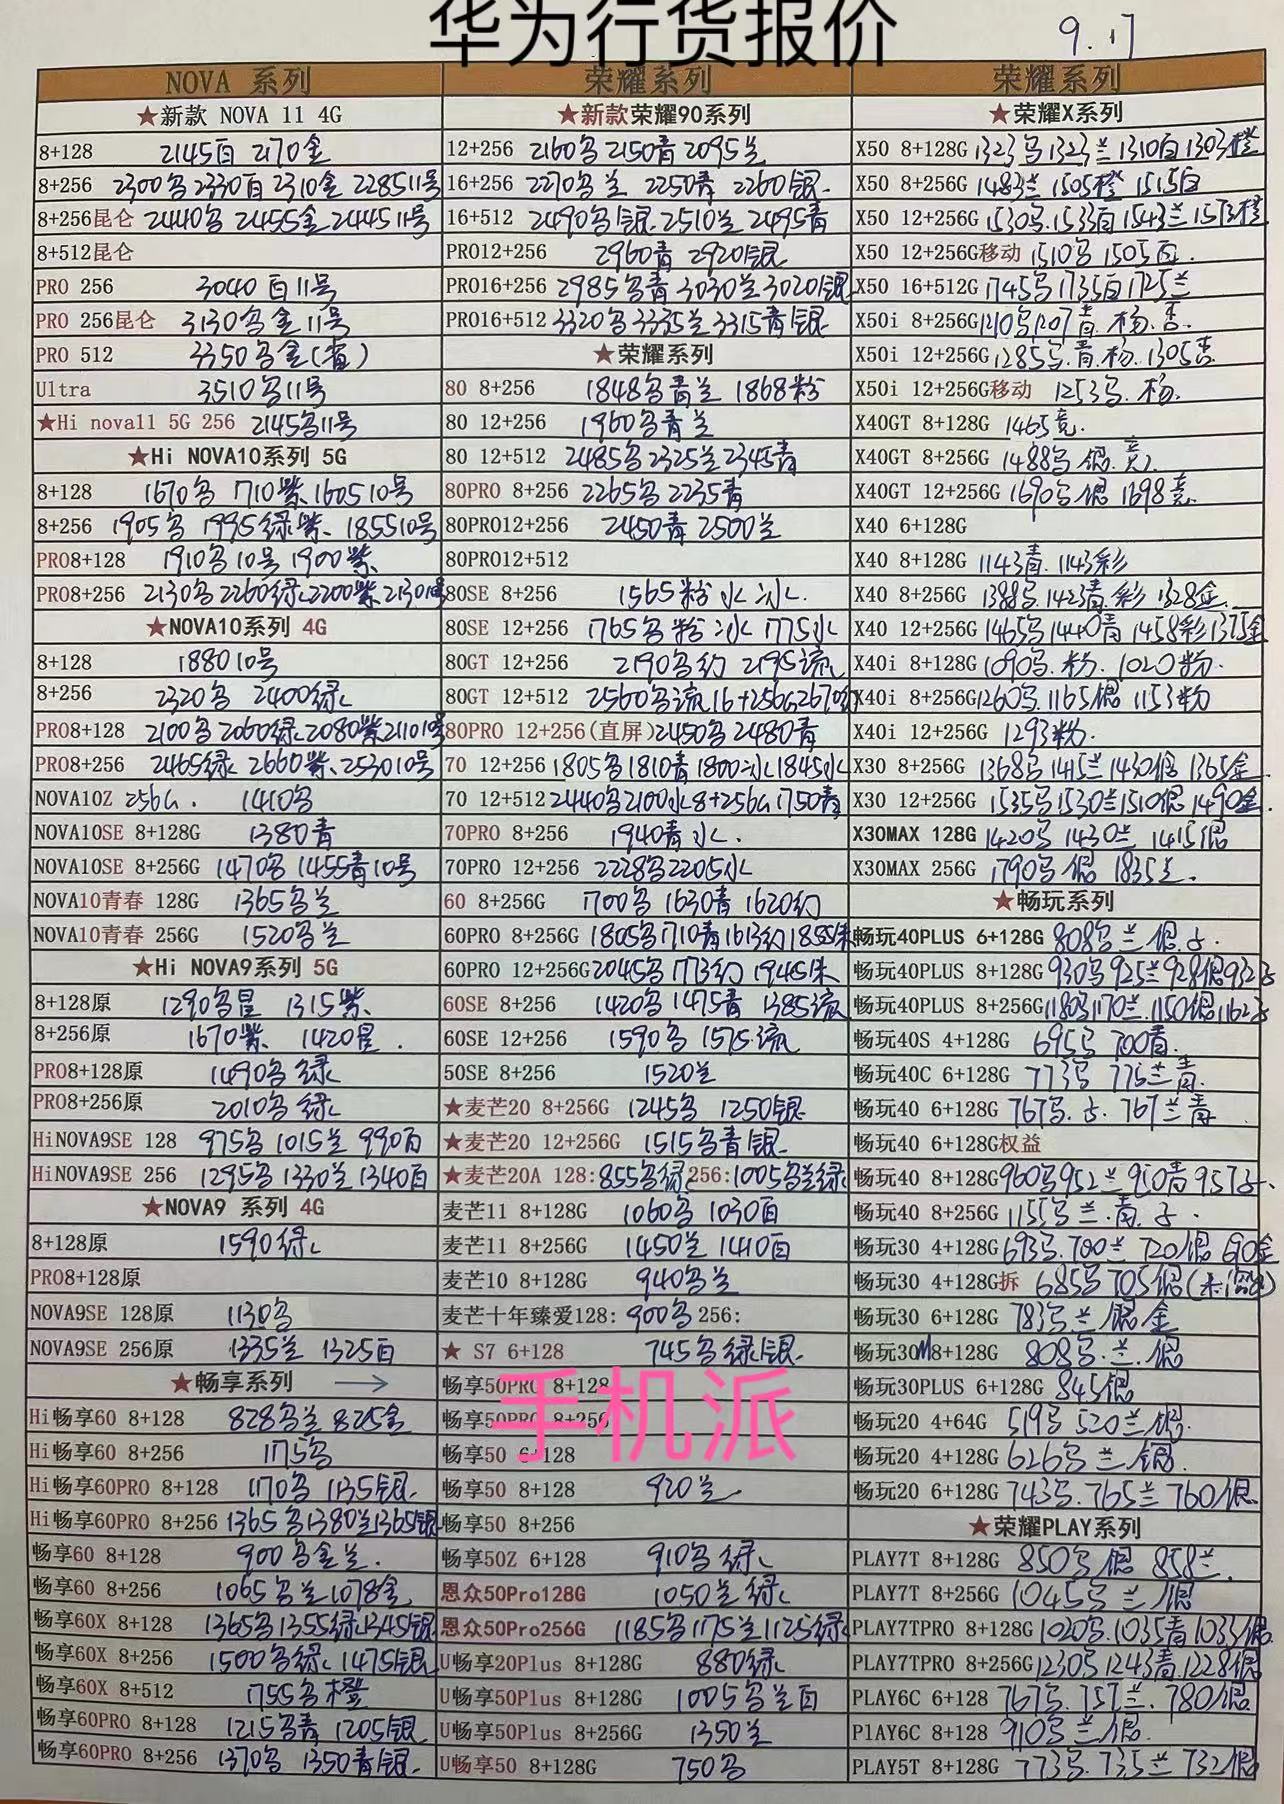 华为行货报价
9.17
NOVA 系列
★新款 NOVA 11 4G
8+128 2145白 2170金
8+256 2300乌 2330白 2310金 2285 11号
8+256昆仑 2440乌 2455金 2445 11号
8+512昆仑
PRO 256 3040 白11号
PRO 256昆仑 3130乌金11号
PRO 512 3350乌金
Ultra 3510乌11号
★Hi nova11 5G 256 2145乌11号
★Hi NOVA10系列 5G
8+128 1670乌 1710紫 1605 10号
8+256 1905乌 1995绿紫、1855 10号
PRO8+128 1910乌10号 1900紫
PRO8+256 2130乌 2260绿 2200紫 2130 10号
★NOVA10系列 4G
8+128 1880 10号
8+256 2320乌 2400绿
PRO8+128 2100乌 2060绿 2080紫 2110 10号
PRO8+256 2465绿 2660紫 2530 10号
NOVA10Z 256G. 1410乌
NOVA10SE 8+128G 1380青
NOVA10SE 8+256G 1470乌 1455青10号
NOVA10青春 128G 1365乌兰
NOVA10青春 256G 1520乌兰
★Hi NOVA9系列 5G
8+128原 1290乌星 1315紫
8+256原 1670紫 1420星.
PRO8+128原 1490乌绿
PRO8+256原 2010乌绿
HiNOVA9SE 128 975乌 1015兰 990白
HiNOVA9SE 256 1295乌 1330兰 1340白
★NOVA9 系列 4G
8+128原 1590绿
PRO8+128原
NOVA9SE 128原 1130乌
NOVA9SE 256原 1335兰 1325白
★畅享系列 →
Hi畅享60 8+128 828乌兰 825金
Hi畅享60 8+256 1175乌
Hi畅享60PRO 8+128 1170乌 1135银.
Hi畅享60PRO 8+256 1365乌1380兰1365银
畅享60 8+128 900乌金兰.
畅享60 8+256 1065乌兰1078金
畅享60X 8+128 1365乌1355绿1345银
畅享60X 8+256 1500乌绿 1475银
畅享60X 8+512 1755乌橙
畅享60PRO 8+128 1215乌青 1205银
畅享60PRO 8+256 1370乌 1350青银.
荣耀系列
★新款荣耀90系列
12+256 2160乌 2150青 2095兰
16+256 2270乌兰 2250青 2260银.
16+512 2490乌银. 2510兰 2495青
PRO12+256 2960青 2920银.
PRO16+256 2985乌青 3030兰 3020银
PRO16+512 3320乌 3335兰 3315青银.
★荣耀系列
80 8+256 1848乌青兰 1868粉
80 12+256 1960乌青兰
80 12+512 2485乌 2325兰 2345青
80PRO 8+256 2265乌 2235青
80PRO12+256 2450青 2500兰
80PRO12+512
80SE 8+256 1565粉水冰.
80SE 12+256 1765乌粉冰 1775水
80GT 12+256 2190乌幻 2195流
80GT 12+512 2560乌流16+256G2670幻
80PRO 12+256(直屏) 2450乌 2480青
70 12+256 1805乌1810青1800冰1845水
70 12+512 2440乌2100水8+256G 1750青
70PRO 8+256 1940青水.
70PRO 12+256 2228乌2205水
60 8+256G 1700乌 1630青 1620幻
60PRO 8+256G 1805乌1710青1613幻1855朱
60PRO 12+256G 2045乌1773幻 1945朱
60SE 8+256 1420乌1475青 1385流
60SE 12+256 1590乌 1575流
50SE 8+256 1520兰
★麦芒20 8+256G 1245乌 1250银.
★麦芒20 12+256G 1515乌青银.
★麦芒20A 128:855乌绿 256:1005乌兰绿
麦芒11 8+128G 1060乌 1030白
麦芒11 8+256G 1450兰 1410白
麦芒10 8+128G 940乌兰
麦芒十年臻爱128: 900乌 256:
★ S7 6+128 745乌绿银.
畅享50PRO 8+128
畅享50PRO 8+256
畅享50 6+128
畅享50 8+128 920兰
畅享50 8+256
畅享50Z 6+128 910乌绿
恩众50Pro128G 1050兰绿
恩众50Pro256G 1185乌1175兰1125绿
U畅享20Plus 8+128G 880绿
U畅享50Plus 8+128G 1005乌兰白
U畅享50Plus 8+256G 1350兰
U畅享50 8+128G 750乌
手机派
荣耀系列
★荣耀X系列
X50 8+128G 1323乌1323兰1310白1303橙
X50 8+256G 1483兰 1505橙 1515白
X50 12+256G 1530乌.1533白1543兰1573橙
X50 12+256G移动 1510乌 1505白.
X50 16+512G 1745乌1735白1725兰
X50i 8+256G 1210乌1207青.杨.杏.
X50i 12+256G 1285乌.青.杨.1305杏.
X50i 12+256G移动 1253乌.杨.
X40GT 8+128G 1465竞.
X40GT 8+256G 1488乌.银.竞.
X40GT 12+256G 1690乌银 1698竞.
X40 6+128G
X40 8+128G 1143青.1143彩
X40 8+256G 1388乌.1423青.彩 1328金.
X40 12+256G 1465乌1440青 1458彩1375金
X40i 8+128G 1090乌.粉.1020粉.
X40i 8+256G 1260乌.1165银 1153粉
X40i 12+256G 1293粉.
X30 8+256G 1368乌1415兰1430银 1365金
X30 12+256G 1535乌1530兰1510银 1490金.
X30MAX 128G 1420乌 1430兰 1415银
X30MAX 256G 1790乌银 1835兰.
★畅玩系列
畅玩40PLUS 6+128G 808乌兰银.子.
畅玩40PLUS 8+128G 930乌925兰928银932子
畅玩40PLUS 8+256G 1180乌1170兰.1150银1162子
畅玩40S 4+128G 695乌 700青.
畅玩40C 6+128G 773乌 775兰青.
畅玩40 6+128G 767乌.子.767兰青
畅玩40 6+128G权益
畅玩40 8+128G 960乌952兰950青957子.
畅玩40 8+256G 1155乌兰.青.子.
畅玩30 4+128G 693乌.700兰 720银 690金
畅玩30 4+128G拆 685乌705银
畅玩30 6+128G 783乌兰银金
畅玩30M8+128G 808乌.兰.银
畅玩30PLUS 6+128G 845银
畅玩20 4+64G 519乌 520兰银.
畅玩20 4+128G 626乌 兰 银.
畅玩20 6+128G 743乌.765兰 760银.
★荣耀PLAY系列
PLAY7T 8+128G 850乌银 858兰.
PLAY7T 8+256G 1045乌兰银
PLAY7TPRO 8+128G 1020乌.1035青1033银.
PLAY7TPRO 8+256G 1230乌1243青.1228银
PLAY6C 6+128 767乌.757兰.780银.
PLAY6C 8+128 910乌兰银.
PLAY5T 8+128G 773乌.735兰 732银